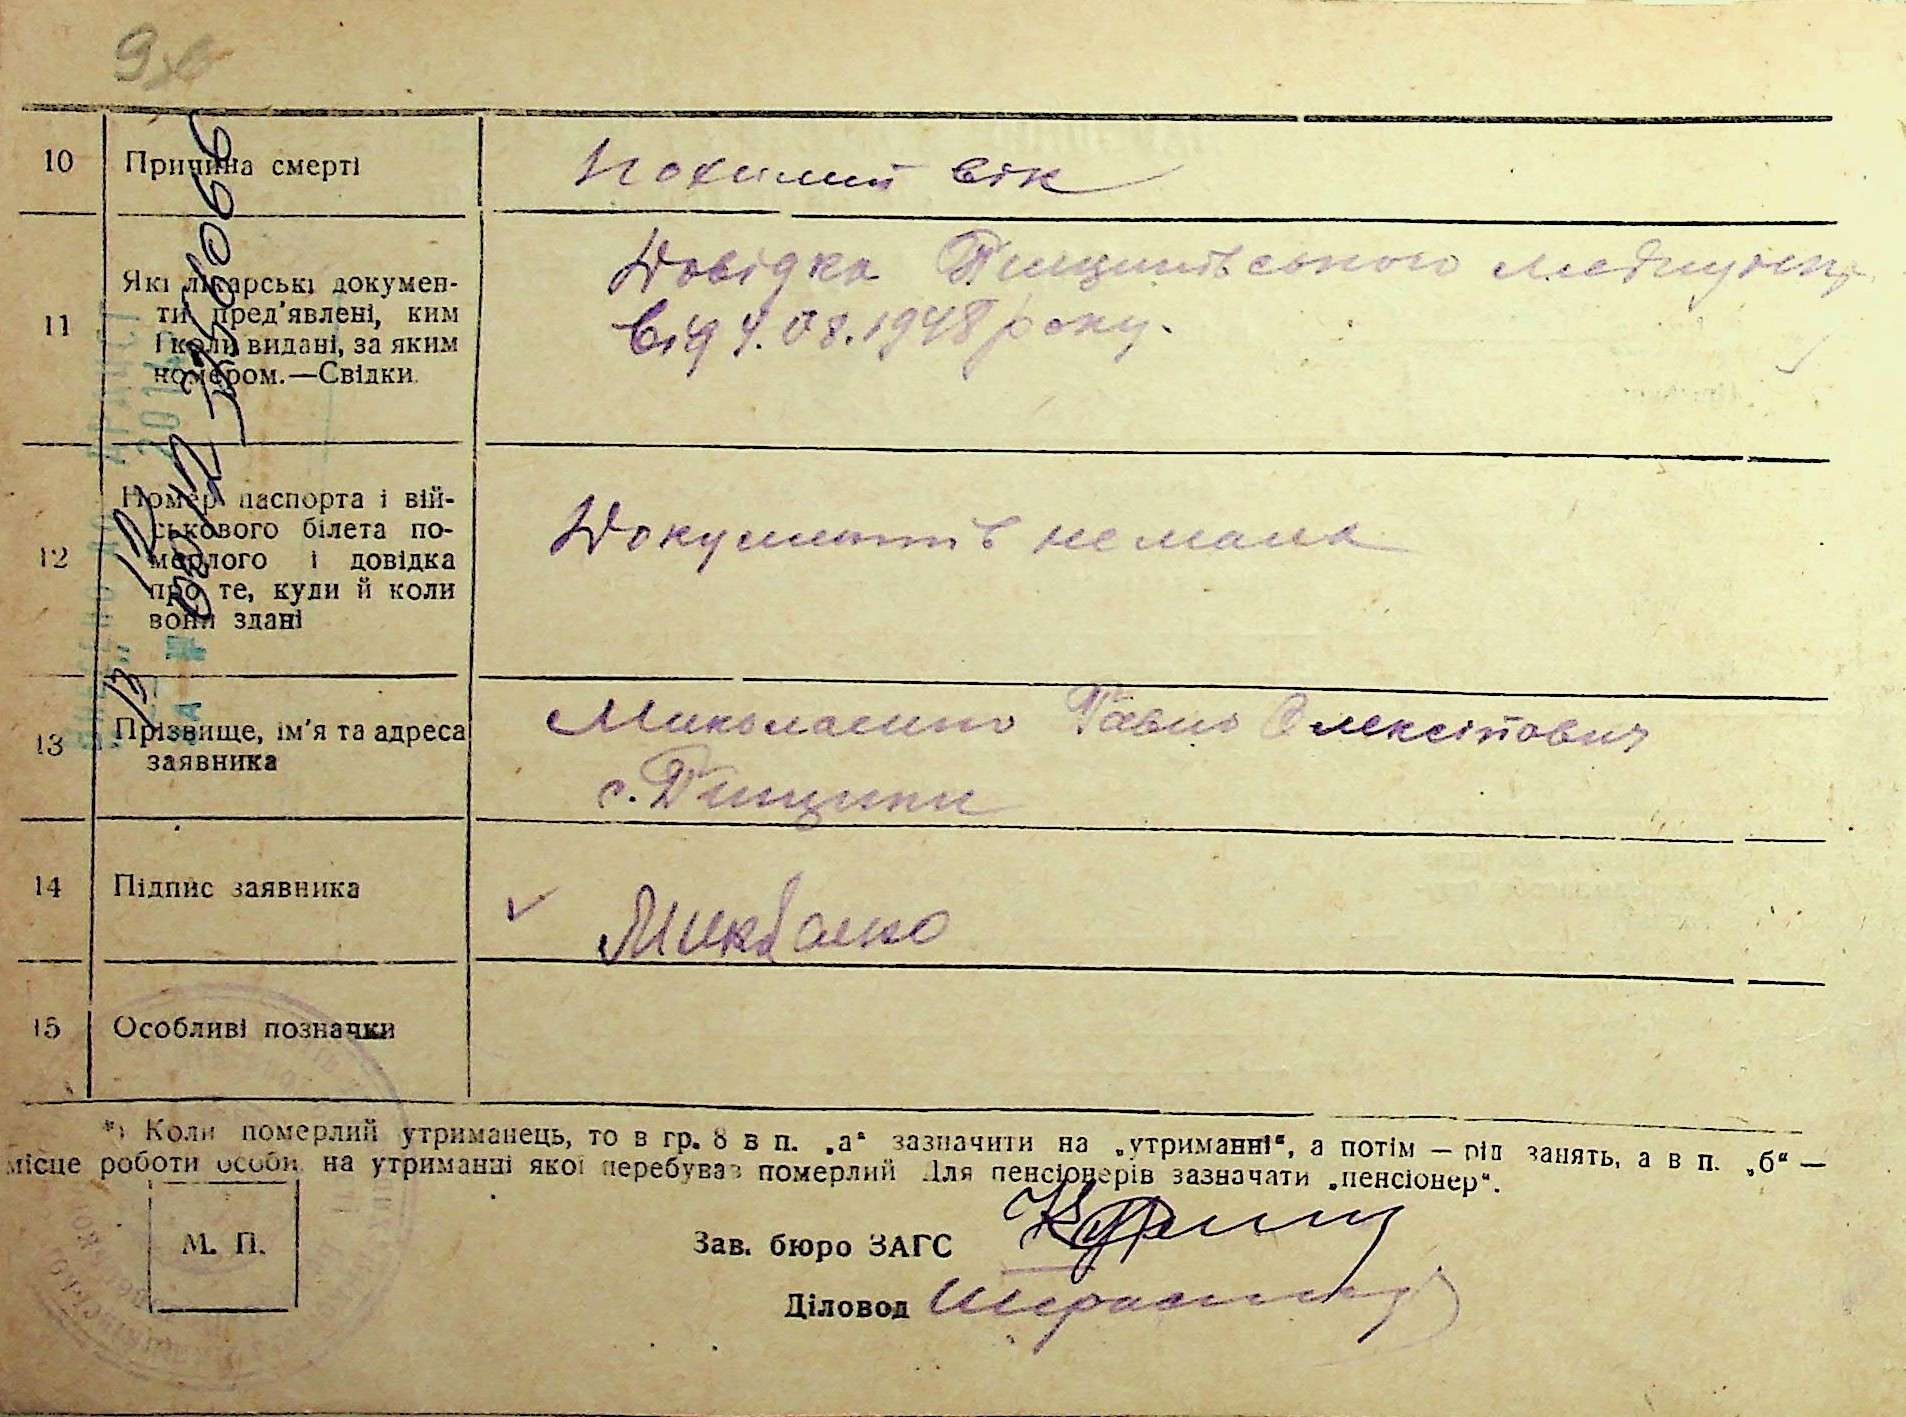 10 Причина смерті Похилий вік
11 Які лікарські докумен-
ти пред'явлені, ким
і коли видані, за яким
номером.—Свідки.
Довідка Пищиківського медпункту
від 4.08.1948 року.
12 Номер паспорта і вій-
ськового білета по-
мерлого і довідка
про те, куди й коли
вони здані
Документів не мала
13 Прізвище, ім'я та адреса
заявника
Миколаенко Павло Олексійович
с. Пищики
14 Підпис заявника
15 Особливі позначки
*) Коли померлий утриманець, то в гр. 8 в п. „а" зазначити на „утриманні", а потім — рід занять, а в п. „б" —
місце роботи особи, на утриманні якої перебував померлий Для пенсіонерів зазначати „пенсіонер".
М. П.
Зав. бюро ЗАГС
Діловод